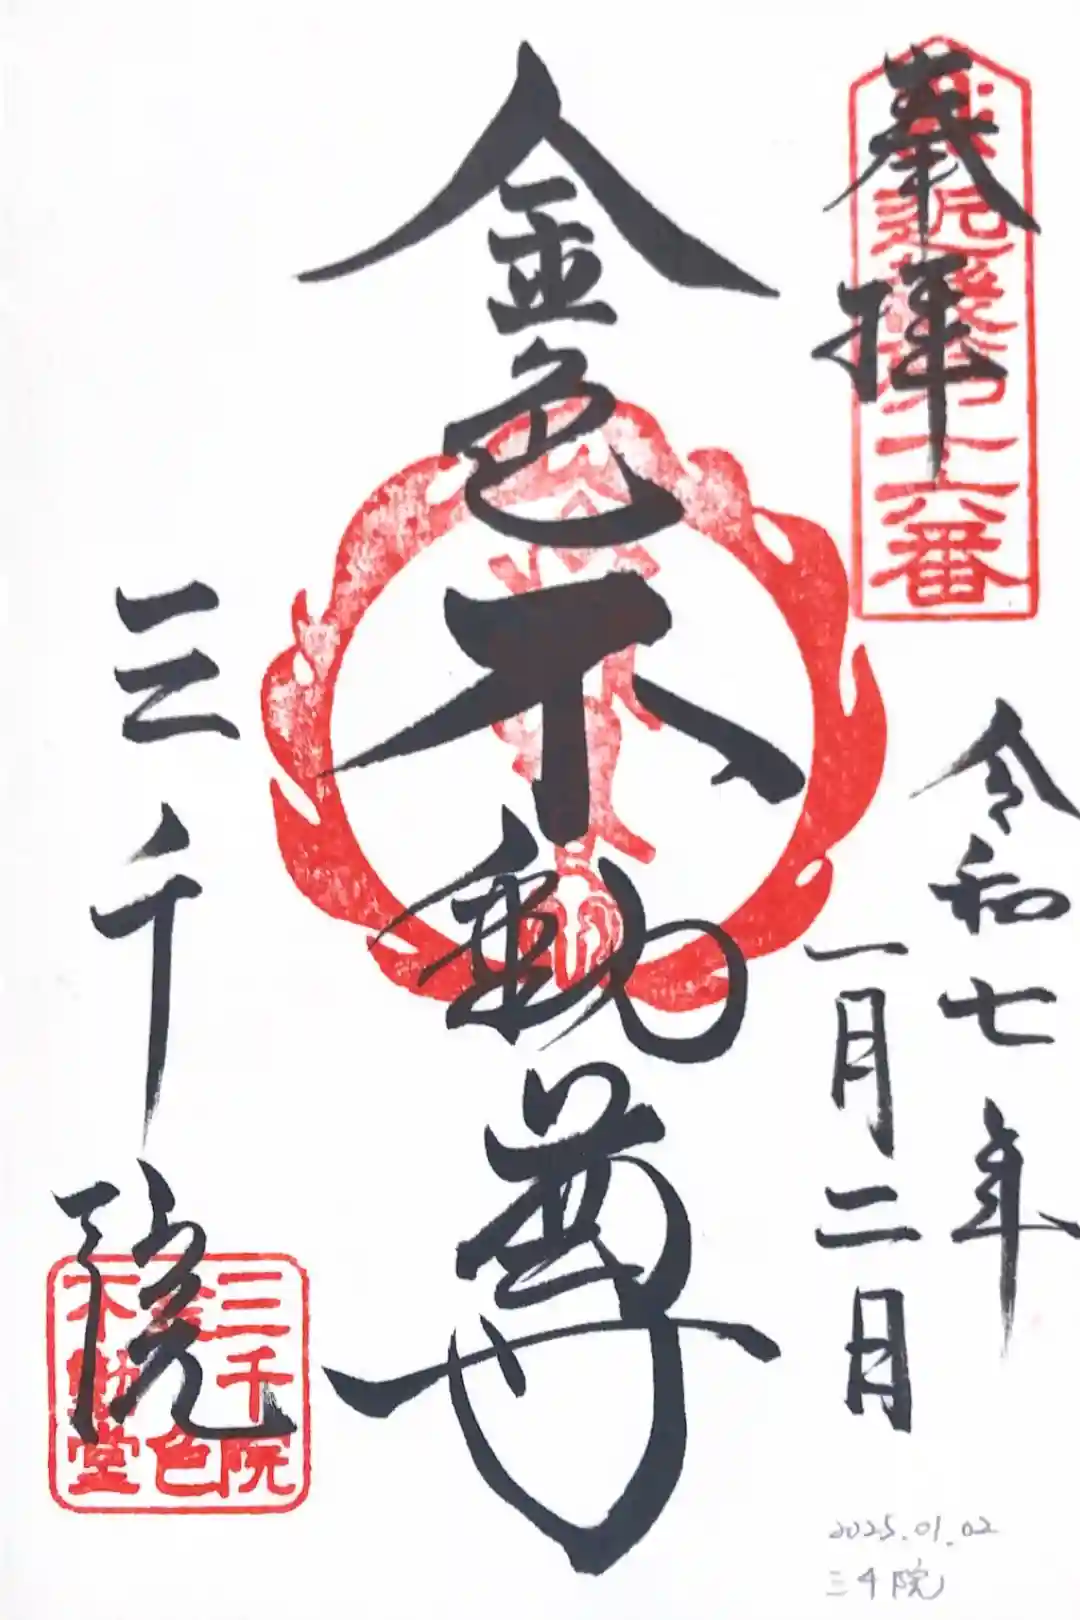 奉拝
近畿第十六番
令和七年
一月二日
金色不動尊
三千院
三千院
金色
不動堂
2025.01.02
三千院